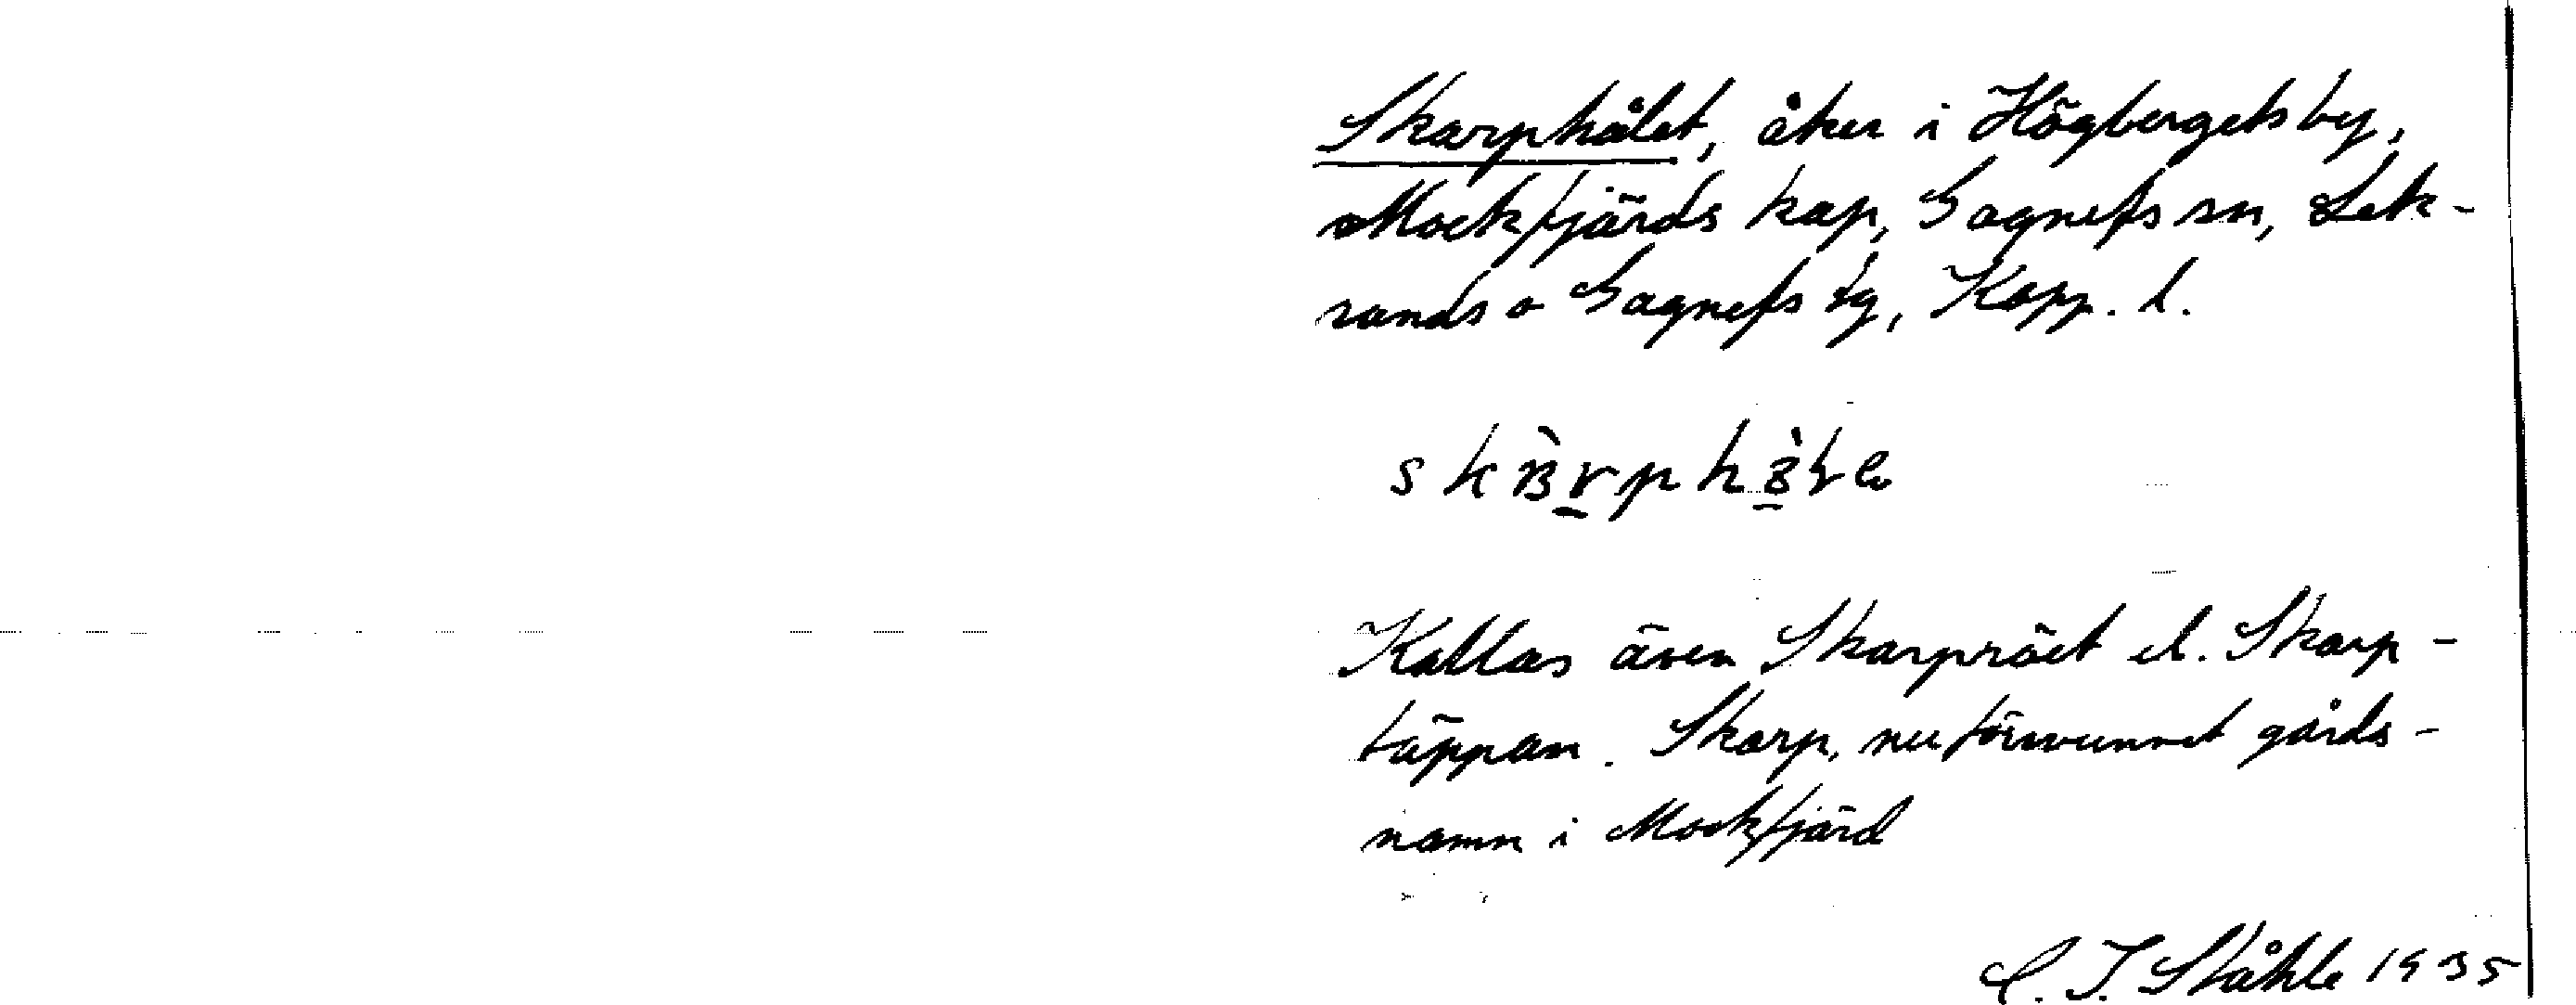 Skarphålet, åker i Högbergets by,
Mockfjärds kap, Gagnefs sn, Lek-
sands o Gagnefs tg, Kopp. l.
Kallas även Skarpröet el. Skarp-
täppan. Skarp, nu försvunnet gårds-
namn i Mockfjärd
C. I. Ståhle 1935